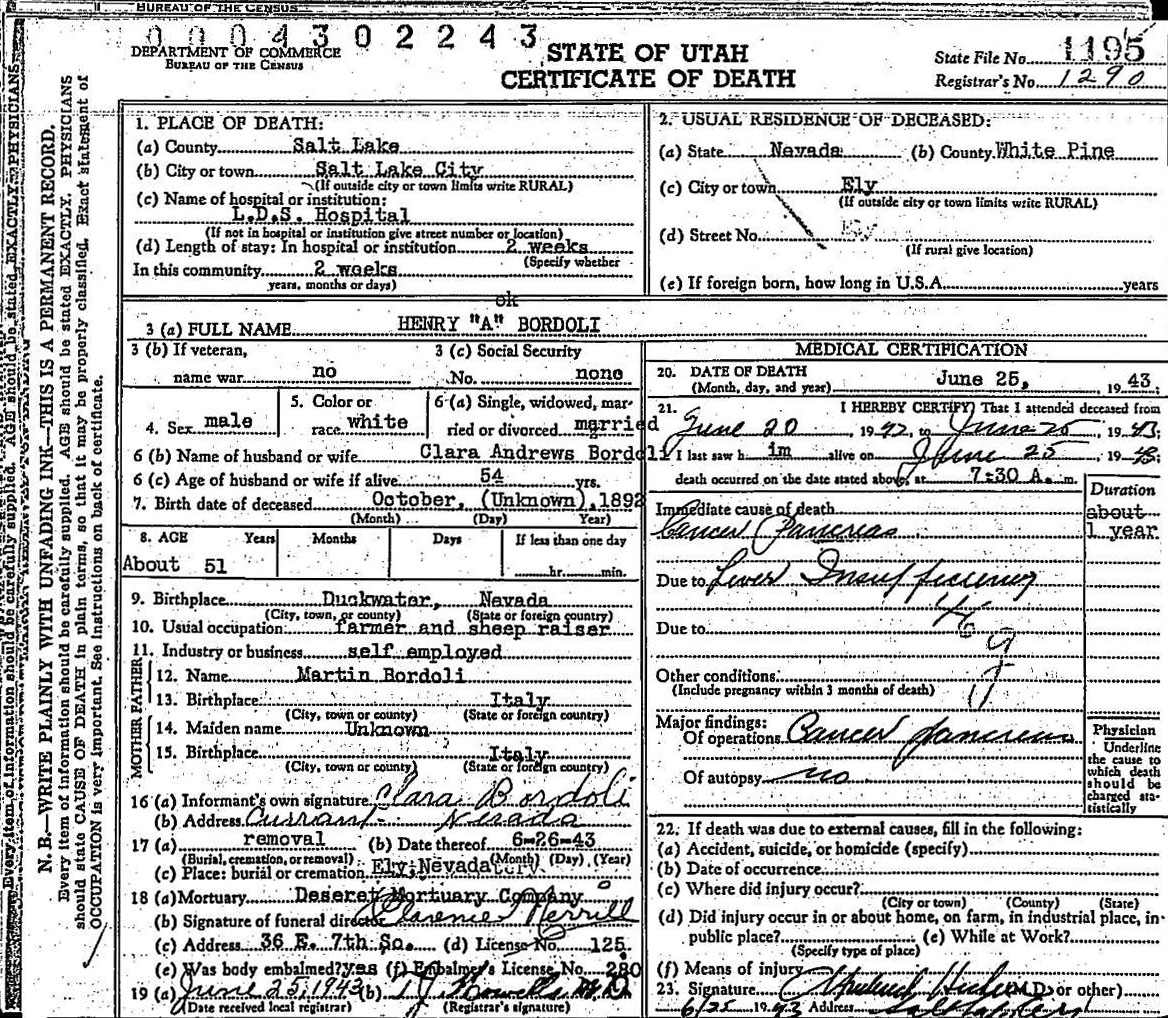 BUREAU OF THE CENSUS
0 0 0 4 3 0 2 2 4 3
DEPARTMENT OF COMMERCE
BUREAU OF THE CENSUS
STATE OF UTAH
CERTIFICATE OF DEATH
State File No. 1195
Registrar's No. 1290
N. B.—WRITE PLAINLY WITH UNFADING INK—THIS IS A PERMANENT RECORD.
Every item of information should be carefully supplied. AGE should be stated EXACTLY. PHYSICIANS
should state CAUSE OF DEATH in plain terms, so that it may be properly classified. Exact statement of
OCCUPATION is very important. See Instructions on back of certificate.
Every item of information should be carefully supplied. AGE should be stated EXACTLY. PHYSICIANS
1. PLACE OF DEATH:
(a) County Salt Lake
(b) City or town Salt Lake City
(If outside city or town limits write RURAL)
(c) Name of hospital or institution:
L.D.S. Hospital
(If not in hospital or institution give street number or location)
(d) Length of stay: In hospital or institution 2 weeks
(Specify whether
In this community 2 weeks
years, months or days)
2. USUAL RESIDENCE OF DECEASED:
(a) State Nevada (b) County White Pine
(c) City or town Ely
(If outside city or town limits write RURAL)
(d) Street No. Ely
(If rural give location)
(e) If foreign born, how long in U.S.A. years
ok
3 (a) FULL NAME HENRY "A" BORDOLI
3 (b) If veteran, 3 (c) Social Security
name war no No. none
4. Sex male 5. Color or race white 6 (a) Single, widowed, mar-
ried or divorced married
6 (b) Name of husband or wife Clara Andrews Bordoli
6 (c) Age of husband or wife if alive 54 yrs.
7. Birth date of deceased October, (Unknown), 1892
(Month) (Day) Year)
8. AGE Years Months Days If less than one day
About 51 hr. min.
9. Birthplace Duckwater, Nevada
(City, town, or county) (State or foreign country)
10. Usual occupation: farmer and sheep raiser
11. Industry or business self employed
FATHER
12. Name Martin Bordoli
13. Birthplace Italy
(City, town or county) (State or foreign country)
MOTHER
14. Maiden name Unknown
15. Birthplace Italy
(City, town or county) (State or foreign country)
16 (a) Informant's own signature Clara Bordoli
(b) Address Currant - Nevada
17 (a) removal (b) Date thereof 6-26-43
(Burial, cremation, or removal) (Month) (Day) (Year)
(c) Place: burial or cremation Ely, Nevada
18 (a) Mortuary Deseret Mortuary Company
(b) Signature of funeral director Clarence Merrill
(c) Address 36 E. 7th So. (d) License No. 125
(e) Was body embalmed? yes (f) Embalmer's License No. 280
19 (a) June 25, 1943 (b) M.D.
(Date received local registrar) (Registrar's signature)
MEDICAL CERTIFICATION
20. DATE OF DEATH
(Month, day, and year) June 25, 19 43
21. I HEREBY CERTIFY, That I attended deceased from
June 20, 1942, to June 25, 1943;
I last saw h im alive on June 25, 1943;
death occurred on the date stated above, at 7:30 A. m.
Duration
Immediate cause of death about
Cancer Pancreas 1 year
Due to Liver Insufficiency
Due to 46
g
Other conditions
(Include pregnancy within 3 months of death)
Major findings:
Of operations Cancer pancreas
Of autopsy no
Physician
Underline
the cause to
which death
should be
charged sta-
tistically
22. If death was due to external causes, fill in the following:
(a) Accident, suicide, or homicide (specify)
(b) Date of occurrence
(c) Where did injury occur?
(City or town) (County) (State)
(d) Did injury occur in or about home, on farm, in industrial place, in
public place? (e) While at Work?
(Specify type of place)
(f) Means of injury
23. Signature (M.D. or other)
6/25 1943 Address